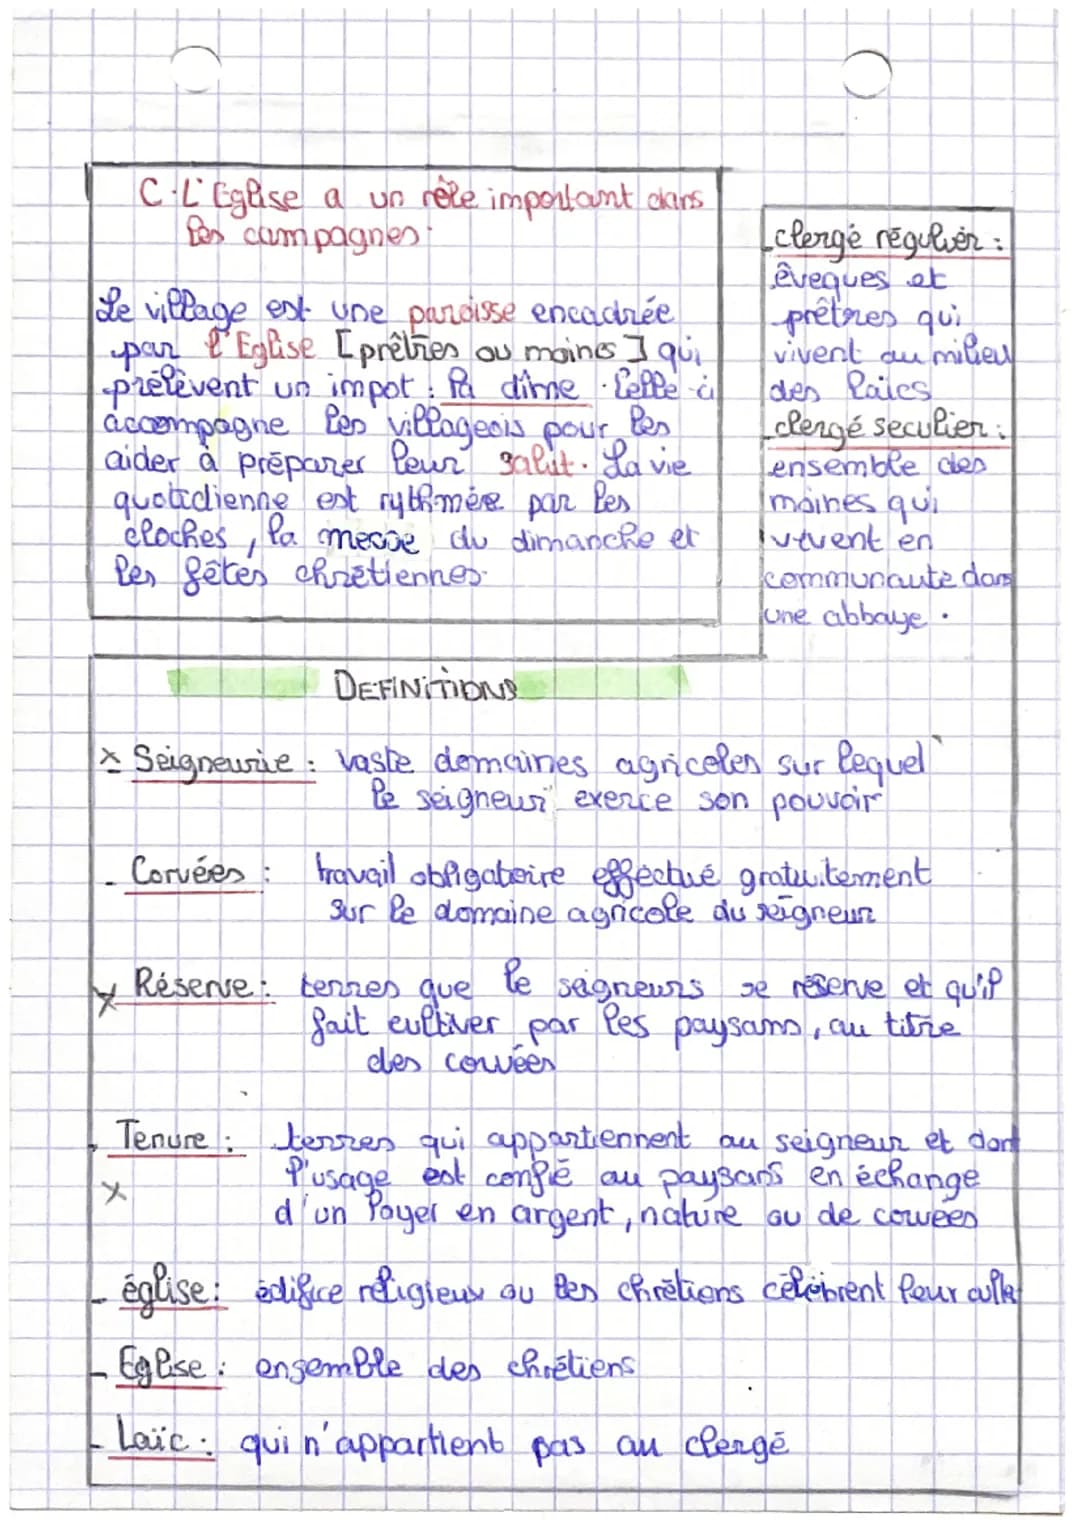 C. L'Eglise a un rôle important dans
les campagnes.
Le village est une paroisse encadrée
par l'Eglise [prêtres ou moines] qui
prélèvent un impot : la dîme. Celle-ci
accompagne les villageois pour les
aider à préparer leur salut. La vie
quotidienne est rythmée par les
cloches, la messe du dimanche et
les fêtes chrétiennes.
clergé régulier :
êveques et
prêtres qui
vivent au milieu
des laïcs
clergé seculier :
ensemble des
moines qui
vivent en
communauté dans
une abbaye.
DEFINITIONS
x Seigneurie : vaste domaines agricoles sur lequel
le seigneur exerce son pouvoir
- Corvées : travail obligatoire efféctué gratuitement
sur le domaine agricole du seigneur
x Réserve : terres que le seigneurs se réserve et qu'il
fait cultiver par les paysans, au titre
des corvées
- Tenure : terres qui appartiennent au seigneur et dont
x l'usage est confié au paysans en échange
d'un loyer en argent, nature ou de corvées
- église : édifice réligieux ou les chrétiens célèbrent leur culte
- Eglise : ensemble des chrétiens
- Laïc : qui n'appartient pas au clergé